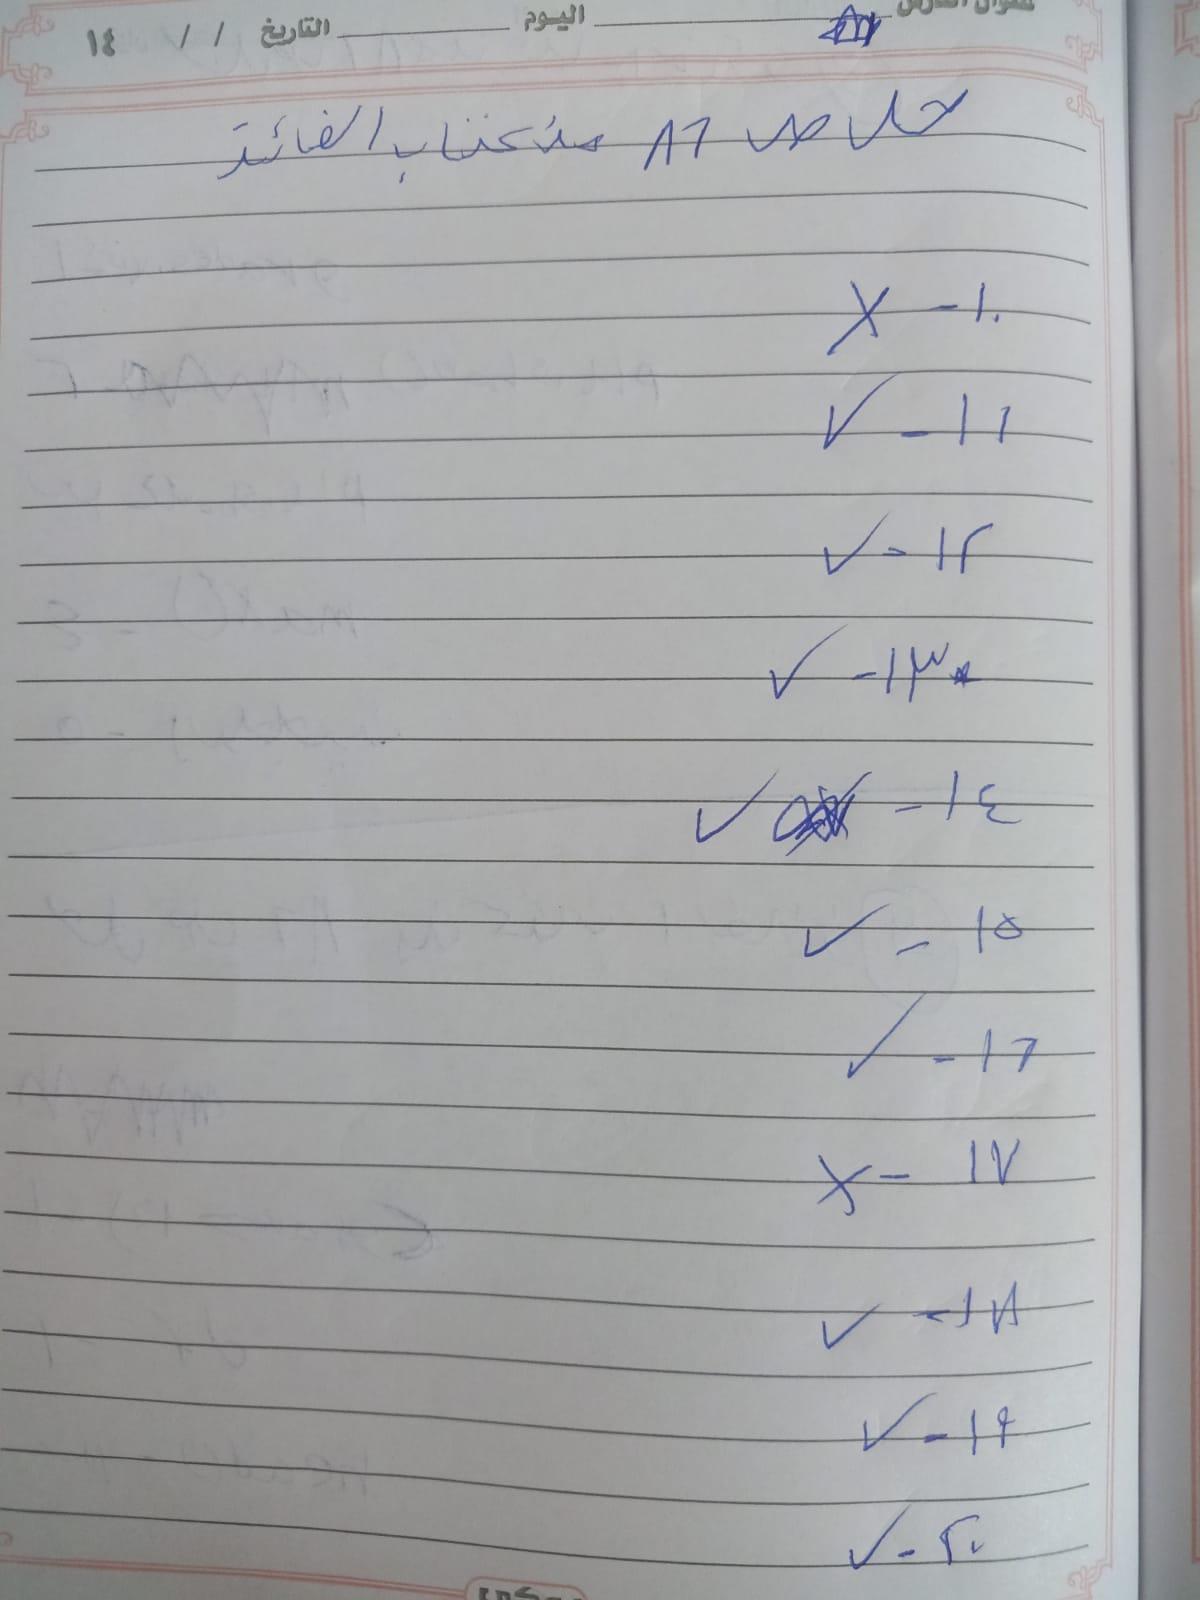 عنوان الدرس اليوم التاريخ / / ١٤
حل ص ٨٦ من كتاب الفائز
١٠- X
١١- ✓
١٢- ✓
١٣- ✓
١٤- ✓
١٥- ✓
١٦- ✓
١٧- X
١٨- ✓
١٩- ✓
٢٠- ✓